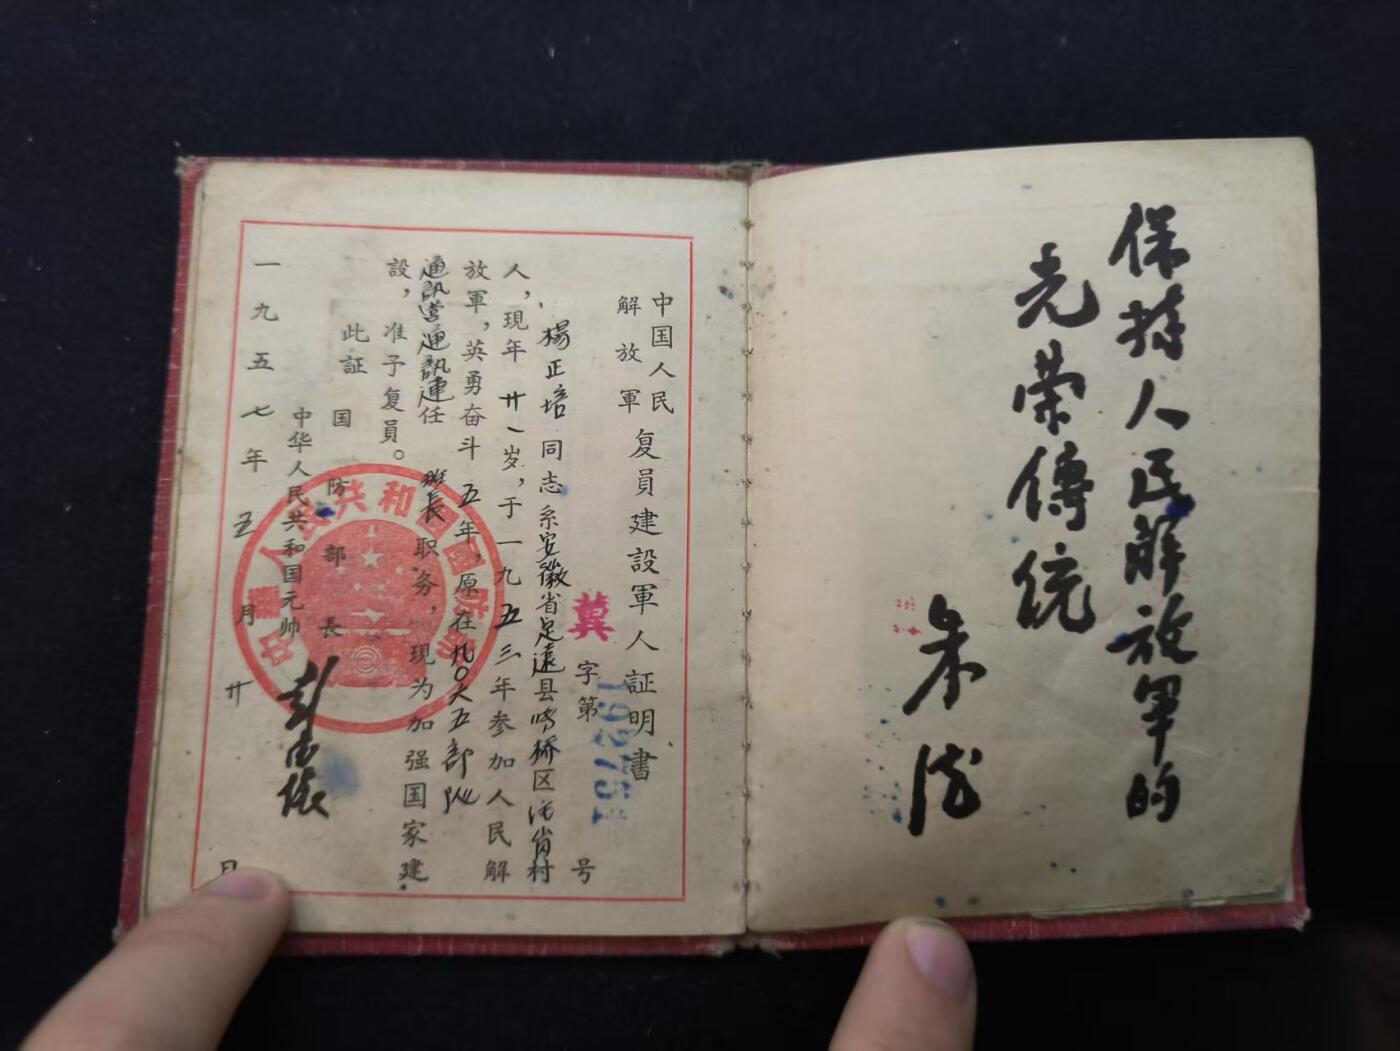 保持人民解放军的
光荣傳统
朱德
中国人民
解放軍
复員建設軍人証明書
冀字第192751号
楊正培同志系安徽省定遠县
区
村
人，現年廿一岁，于一九五三年参加人民解
放軍，英勇奋斗五年，原在九〇六五部队
通訊营通訊連任班長职务，現为加强国家建
設，准予复員。
此証
国防部長
中华人民共和国元帅
彭德懐
一九五七年五月廿日
中華人民共和國國防部